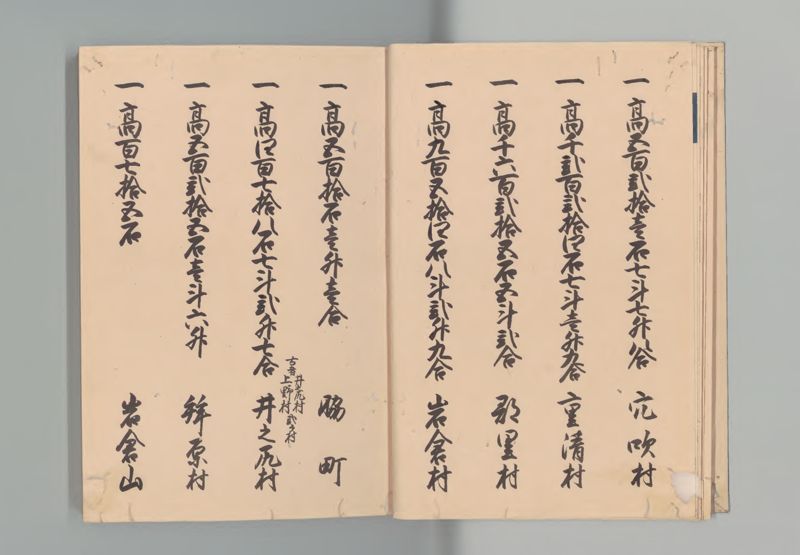 一 高五百弐拾壱石七斗七升八合 穴吹村
一 高千弐百弐拾四石七斗壱升九合 重清村
一 高千六百弐拾五石五斗弐合 郡里村
一 高九百五拾四石八斗弐升九合 岩倉村
一 高五百拾石壱升壱合 脇町
一 高四百七拾八石七斗弐升七合 井之尻村
井尻村
上野村 弐ケ村
一 高五百弐拾五石壱斗六升 拝原村
一 高百七拾五石 岩倉山